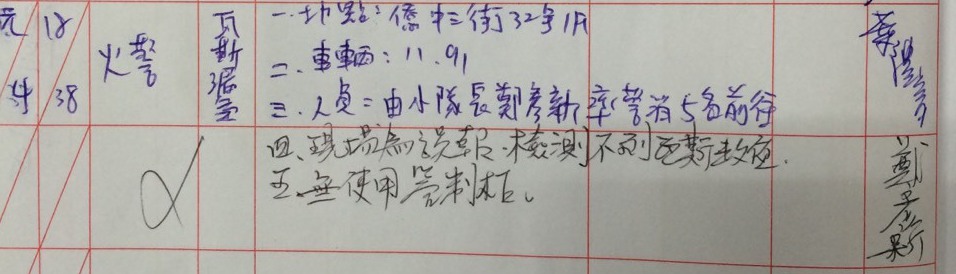 18
38
火警
瓦斯洩
一.地點:僑中三街32号1F
二.車輛:11.91
三.人員:由小隊長鄭彥新率警消5名前往
四.現場為誤報.檢測不到瓦斯數值.
五.無使用管制柜。
鄭彥新